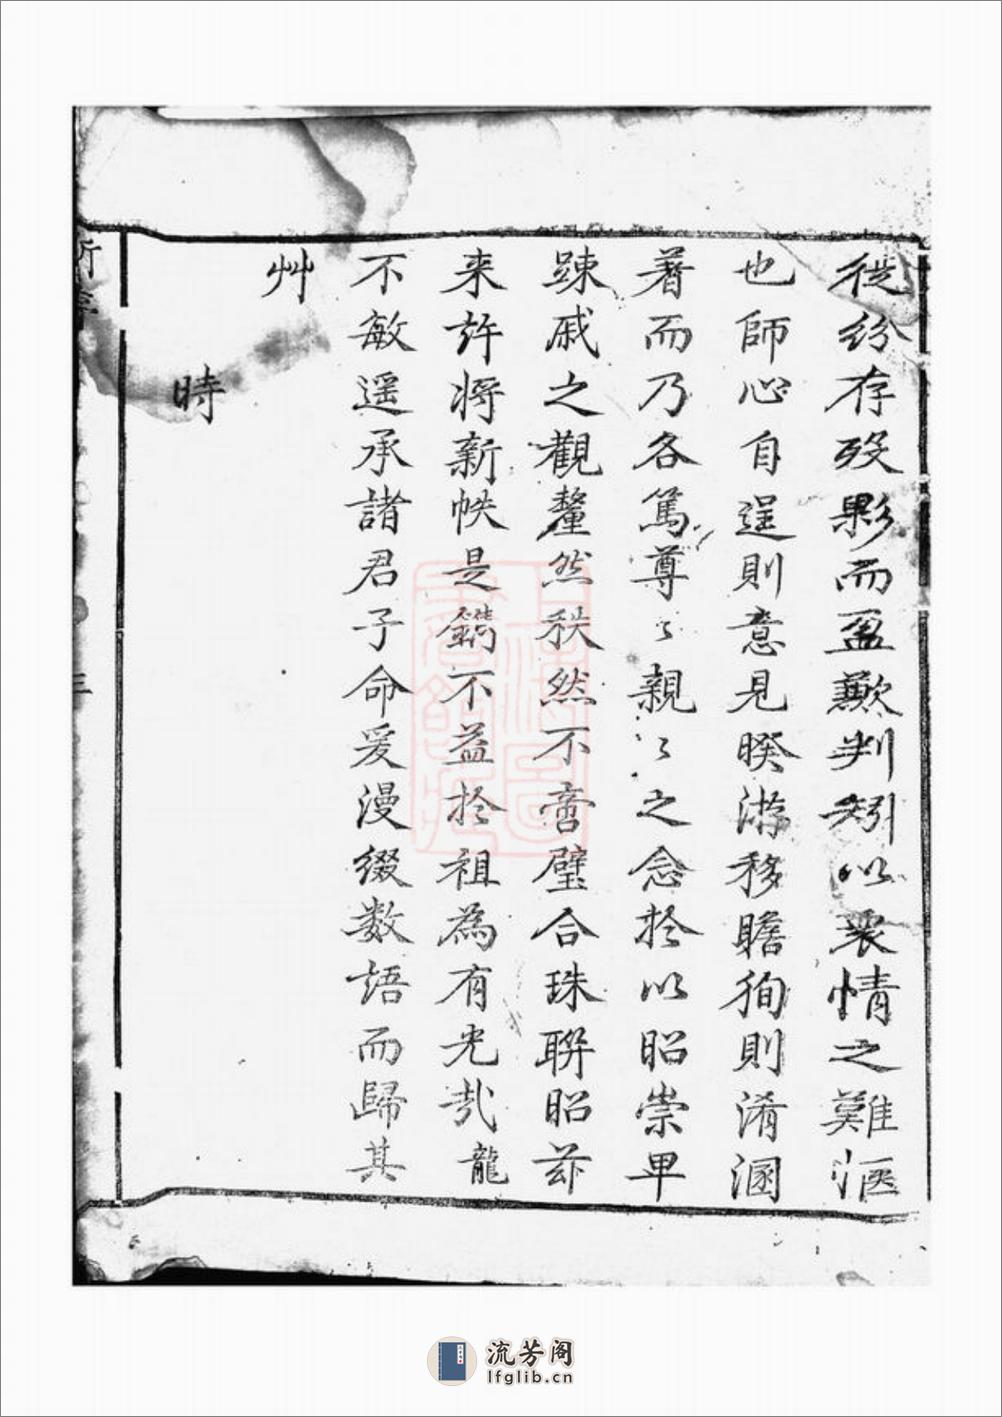 從紛存歿影而盈歉判矧以衆情之難愜
也師心自逞則意見暌游移瞻徇則淆溷
著而乃各篤尊〻親〻之念於以昭崇卑
踈戚之觀釐然秩然不啻璧合珠聯昭茲
来許將新帙是鐫不益於祖為有光哉龍
不敏遥承諸君子命爰漫綴数語而歸其
艸
時
三
流芳阁
lfglib.cn